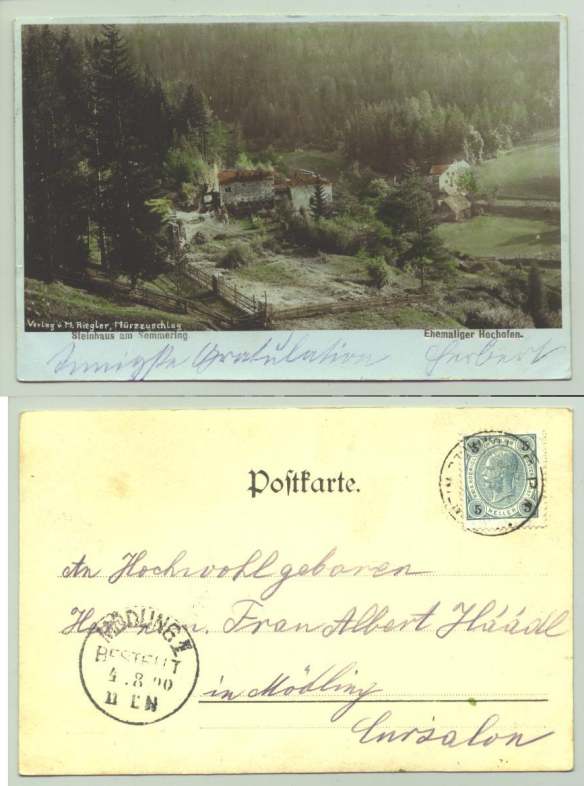 Verlag v. M. Riegler, Mürzzuschlag
Steinhaus am Semmering
Ehemaliger Hochofen.
Innigste Gratulation Herbert
Postkarte.
5 HELLER 5
An Hochwohlgeboren
Fran Albert Häädl
MÖDLING
BESTELLT
4.8.00
in Mödling
Cursalon